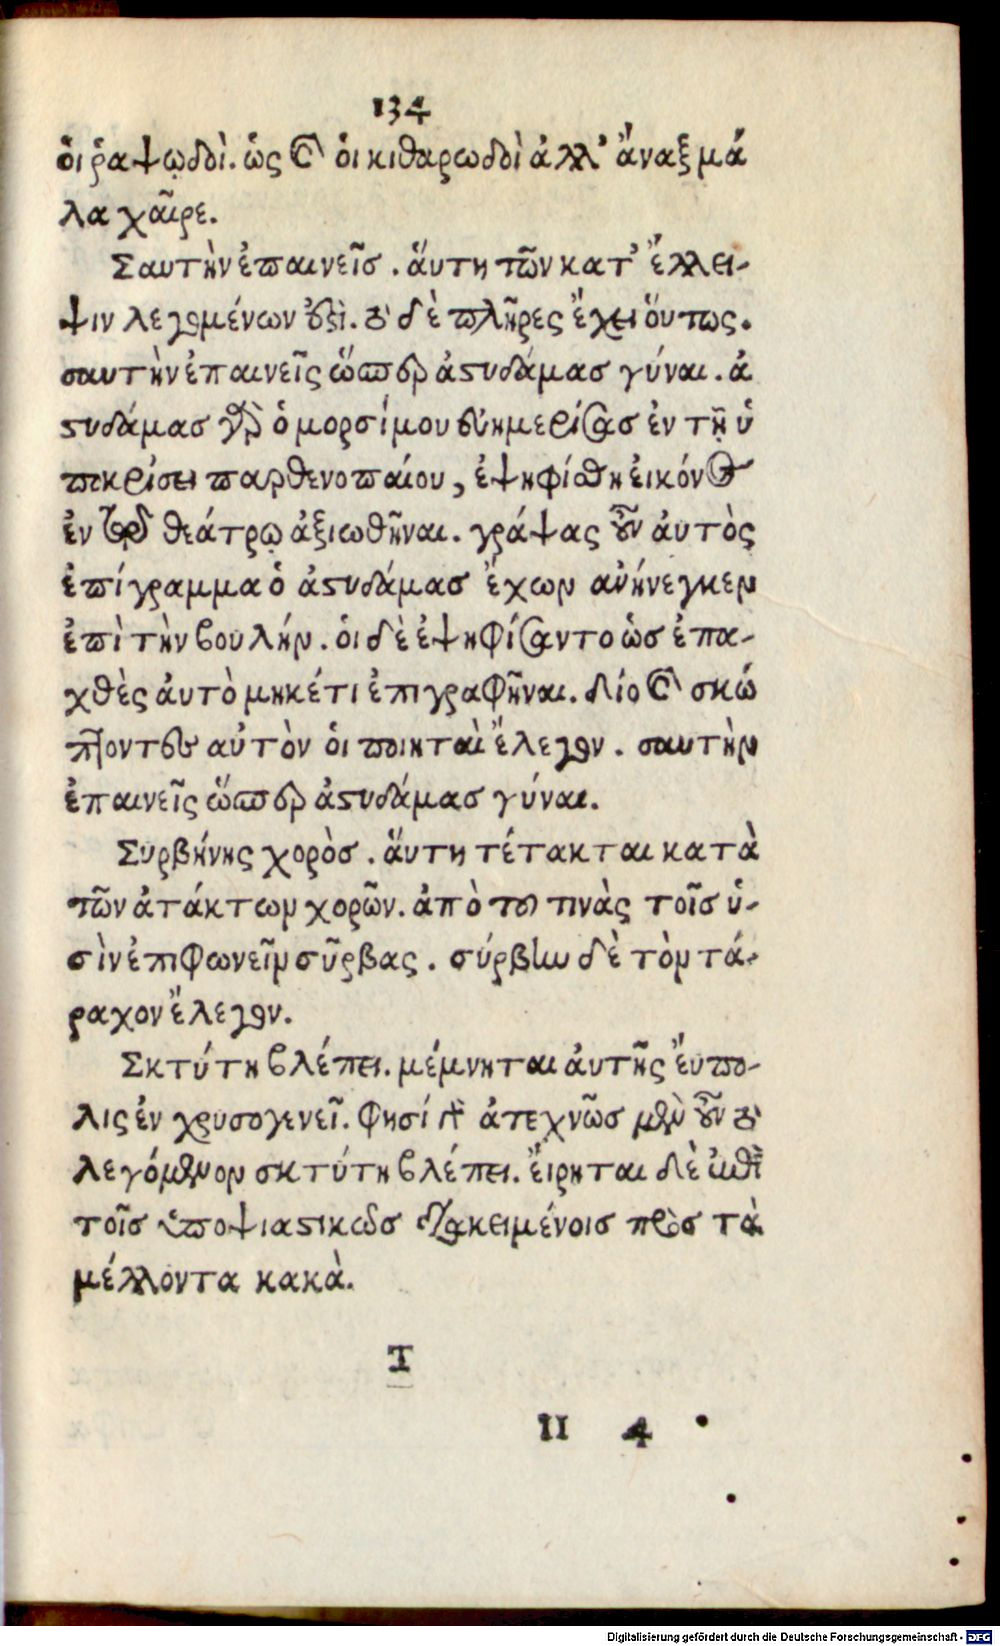 134
ὁι ῥαψῳδοὶ. ὡς καὶ ὁι κιθαρωδοὶ ἀλλ' ἄναξ μά
λα χαῖρε.
Σαυτὴν ἐπαινεῖσ. ἅυτη τῶν κατ' ἔλλει-
ψιν λεγομένων ἐστὶ. τὸ δὲ πλῆρες ἔχει ὅυτως.
σαυτὴν ἐπαινεῖς ὥσπερ ἀστυδάμασ γύναι. ἀ
στυδάμασ γὰρ ὁ μορσίμου εὐημερίσασ ἐν τῇ ὑ
ποκρίσει παρθενοπαίου, ἐψηφίσθη ἐικόνος
ἐν τῷ θεάτρῳ ἀξιωθῆναι. γράψας οὖν ἀυτὸς
ἐπίγραμμα ὁ ἀστυδάμασ ἔχων ἀνήνεγκεν
ἐπὶ τὴν βουλήν. ὁι δὲ ἐψηφίσαντο ὡσ ἐπα-
χθὲς ἀυτὸ μηκέτι ἐπιγραφῆναι. διὸ καὶ σκώ
πτοντες αὐτὸν ὁι ποιηταὶ ἔλεγον. σαυτὴν
ἐπαινεῖς ὥσπερ ἀστυδάμασ γύναι.
Συρβήνης χορὸσ. ἅυτη τέτακται κατὰ
τῶν ἀτάκτων χορῶν. ἀπὸ τοῦ τινὰς τοῖσ ὑ-
σὶν ἐπιφωνεῖν σῦρβας. σύρβην δὲ τὸν τά-
ραχον ἔλεγον.
Σκτύτη βλέπει. μέμνηται ἀυτῆς ἔυπο-
λις ἐν χρυσογενεῖ. φησί δὲ ἀτεχνῶσ μὲν οὖν τὸ
λεγόμενον σκτύτη βλέπει. ἔιρηται δὲ ἐπὶ
τοῖσ ὑποψιαστικῶσ διακειμένοισ πρὸσ τὰ
μέλλοντα κακὰ.
Τ
II 4
Digitalisierung gefördert durch die Deutsche Forschungsgemeinschaft - DFG